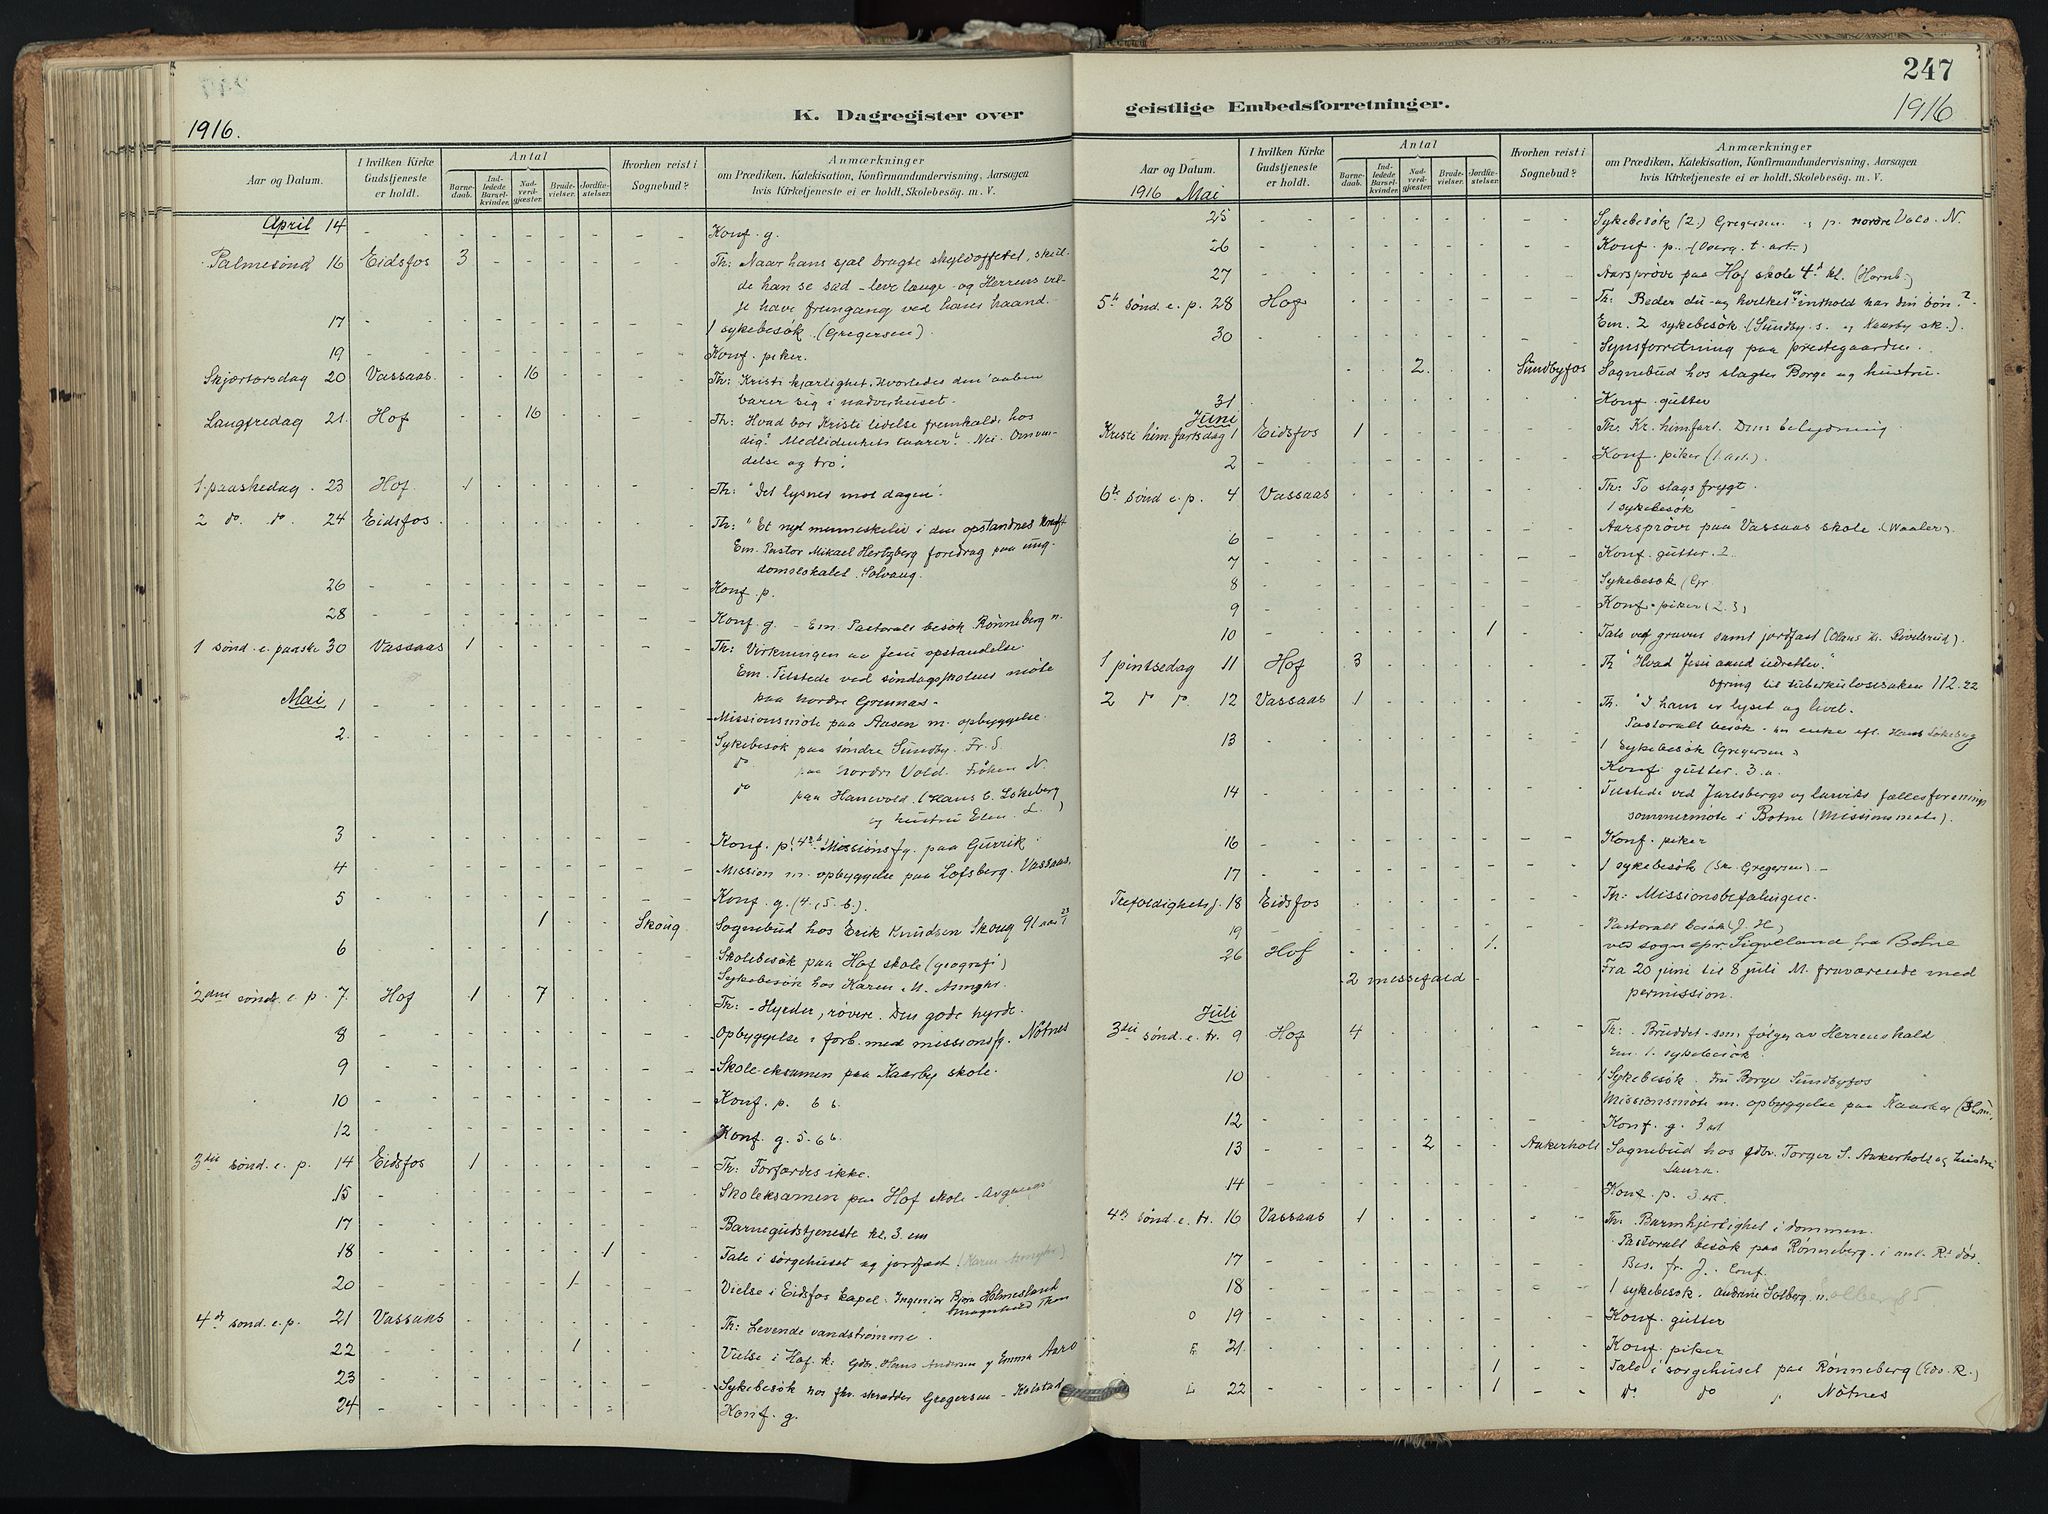 247
K. Dagregister over geistlige Embedsforretninger.
1916.
1916
Aar og Datum.
I hvilken Kirke Gudstjeneste er holdt.
Antal
Barnedaab.
Indledede Barselkvinder.
Nadverdgjæster.
Brudevielser.
Jordfæstelser.
Hvorhen reist i Sognebud?
Anmærkninger
om Prædiken, Katekisation, Konfirmandundervisning, Aarsagen
hvis Kirketjeneste ei er holdt. Skolebesøg. m. V.
April 14 Konf. g.
Palmesönd 16 Eidsfos 3 Th: Naar hans sjæl bragte skyldofferet, skul-
de han se sæd - leve længe - og Herrens vil-
je have fremgang ved hans haand.
17 1 sykebesök. (Gregersen).
19 Konf. piker.
Skjærtorsdag 20 Vassaas 16 Th: Kristi kjærlighet. Hvorledes den aaben
barer sig i nadverhuset.
Langfredag 21. Hof 16 Th: Hvad bör Kristi lidelse fremkalde hos
dig? Medlidenhets taarer? Nei. Omven-
delse og tro.
1. paaskedag. 23 Hof. 1 Th: "Det lysner mot dagen".
2 do. do. 24 Eidsfos Th: "Et nyt menneskeliv i den opstandnes kraft
Em. Pastor Mikael Hertzberg foredrag paa ung-
domslokalet Solvang.
26 Konf. p.
28 Konf. g. - Em. Pastoralt besök Rönneberg n.
1 sönd. e. paaske 30 Vassaas 1 Th: Virkningen av Jesu opstandelse.
Em. Tilstede ved söndagsskolens möte
paa nordre Grennes.
Mai 1 Missionsmöte paa Aasen m. opbyggelse.
2. Sykebesök paa söndre Sundby. Fr. S.
do paa nordre Vold. Fröken N.
do paa Hanevold. (Hans C. Lökeberg
og hustru Elen. L.)
3 Konf. p. (4de) Missionsfg. paa Gurrik.
4 Mission m. opbyggelse paa Löfsberg. Vassaas.
5 Konf. g. (4. 5. b.).
1 Skoug Sognebud hos Erik Knudsen Skoug 91 aar
6 Skolebesök paa Hof skole (geografi)
Sykebesök hos Karen M.
2den sönd. e. p. 7. Hof 1 7 Th: - Hyrder, rövere. Den gode hyrde.
8 Opbyggelse i forb. med missionsfg. Nötnes
9 Skole-eksamen paa Kaarby skole.
10 Konf. p. 6 b.
12 Konf. g. 5. 6 b.
3die sönd. e. p. 14 Eidsfos 1 Th: Forfærdes ikke.
15 Skoleksamen paa Hof skole - Avgangs
17 Barnegudstjeneste kl. 3. em
18 1 Tale i sörgehuset og jordfæst.
20 1 Vielse i Eidsfos kapel. Ingeniör Björn Holmesland
4de sond. e. p. 21 Vassaas Th: Levende vandströmme.
22 1 Vielse i Hof k: Gdbr. Hans Andersen og Emma Aarö
23 Sykebesök hos fhv. skrædder Gregersen - Holstad
24 Konf. g.
1916 Mai
25 Sykebesök (2) Gregersen og p. nordre Vold. N.
26 Konf. p. (Overg. t. art.)
27 Aarspröve paa Hof skole 4de kl. (Hornb.)
5te sönd. e. p. 28 Hof Th: Beder du - og hvilket er indhold har din bön?
Em. 2 sykebesök (Sundby s. og Kaarby sk.).
30 Synsforretning paa prestegaarden.
2 Sundbyfos Sognebud hos slagter Borge og hustru.
31 Konf. gutter
Juni
Kristi him. fartsdag 1 Eidsfos 1 Th: Kr. himfart. Dens betydning.
2 Konf. piker (1 art.)
6te sönd e. p. 4 Vassaas Th: To slags frygt.
1 sykebesök
6 Aarspröve paa Vassaas skole. (Waaler).
7 Konf. gutter. 2.
8 Sykebesök (Gr.
9 Konf. piker (2. 3)
10 1 Tale ved graven samt jordfæst
1 pintsedag 11 Hof 3 Th "Hvad Jesu aand udretter."
Ofring til tuberkulosesaken 112.22
2 do do 12 Vassaas 1 Th. "I ham er lyset og livet.
Pastoralt besök hos enke eft. Hans Lökeberg
13 1 Sykebesök (Gregersen)
Konf. gutter. 3. a.
14 Tilstede ved Jarlsbergs og Larviks fællesforenings
sommermöte i Botne (Missionsmöte).
16 Konf. piker
17 1 sykebesök (Sk. Gregersen)
Trefoldighetss. 18 Eidsfos Th: Missionsbefalingen.
19 Pastoralt besök (J. H)
26 Hof 1. ved sognepr. Sigveland fra Botne
2 messefald Fra 20 juni til 8 juli M. fraværende med
permission.
Juli
3die sönd. e. tr. 9 Hof 4 Th: Bruddet som fölger av Herrens kald
Em. 1. sykebesök.
10 1 Sykebesök. Fru Borge Sundbyfos
Missionsmöte m. opbyggelse paa
12 Konf. g. 3 art
13 2 Aakerholt Sognebud hos gdbr. Torger S. Aakerholt og hustru
Laura.
14 Konf. p. 3 art.
4de sönd. e. tr. 16 Vassaas 1 Th: Barmhjertighet i dommen.
17 Pastoralt besök paa Rönneberg. i anl. Rs död.
Bes. fr. J. Conf.
18 1 sykebesök. Andrine Solberg
19 Konf. gutter
21. Konf. piker
1 Tale i sörgehuset paa Rönneberg (Edv. R.)
22 1 do do Nötnes